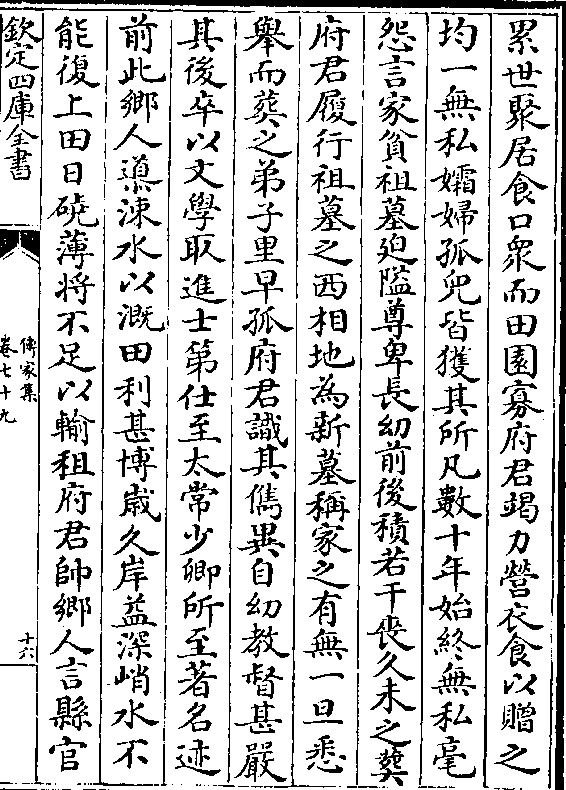 累世聚居食口衆而田園寡府君竭力營衣食以贍之
均一無私孀婦孤兒皆獲其所凡數十年始終無私毫
怨言家貧祖墓廹隘尊卑長幼前後積若干喪久未之葬
府君履行祖墓之西相地為新墓稱家之有無一旦悉
舉而葬之弟子里早孤府君識其儁異自幼教督甚嚴
其後卒以文學取進士第仕至太常少卿所至著名迹
前此鄉人導涑水以溉田利甚博歳久岸益深峭水不
能復上田日磽薄将不足以輸租府君帥鄉人言縣官
欽定四庫全書
傳家集
卷七十九
十六